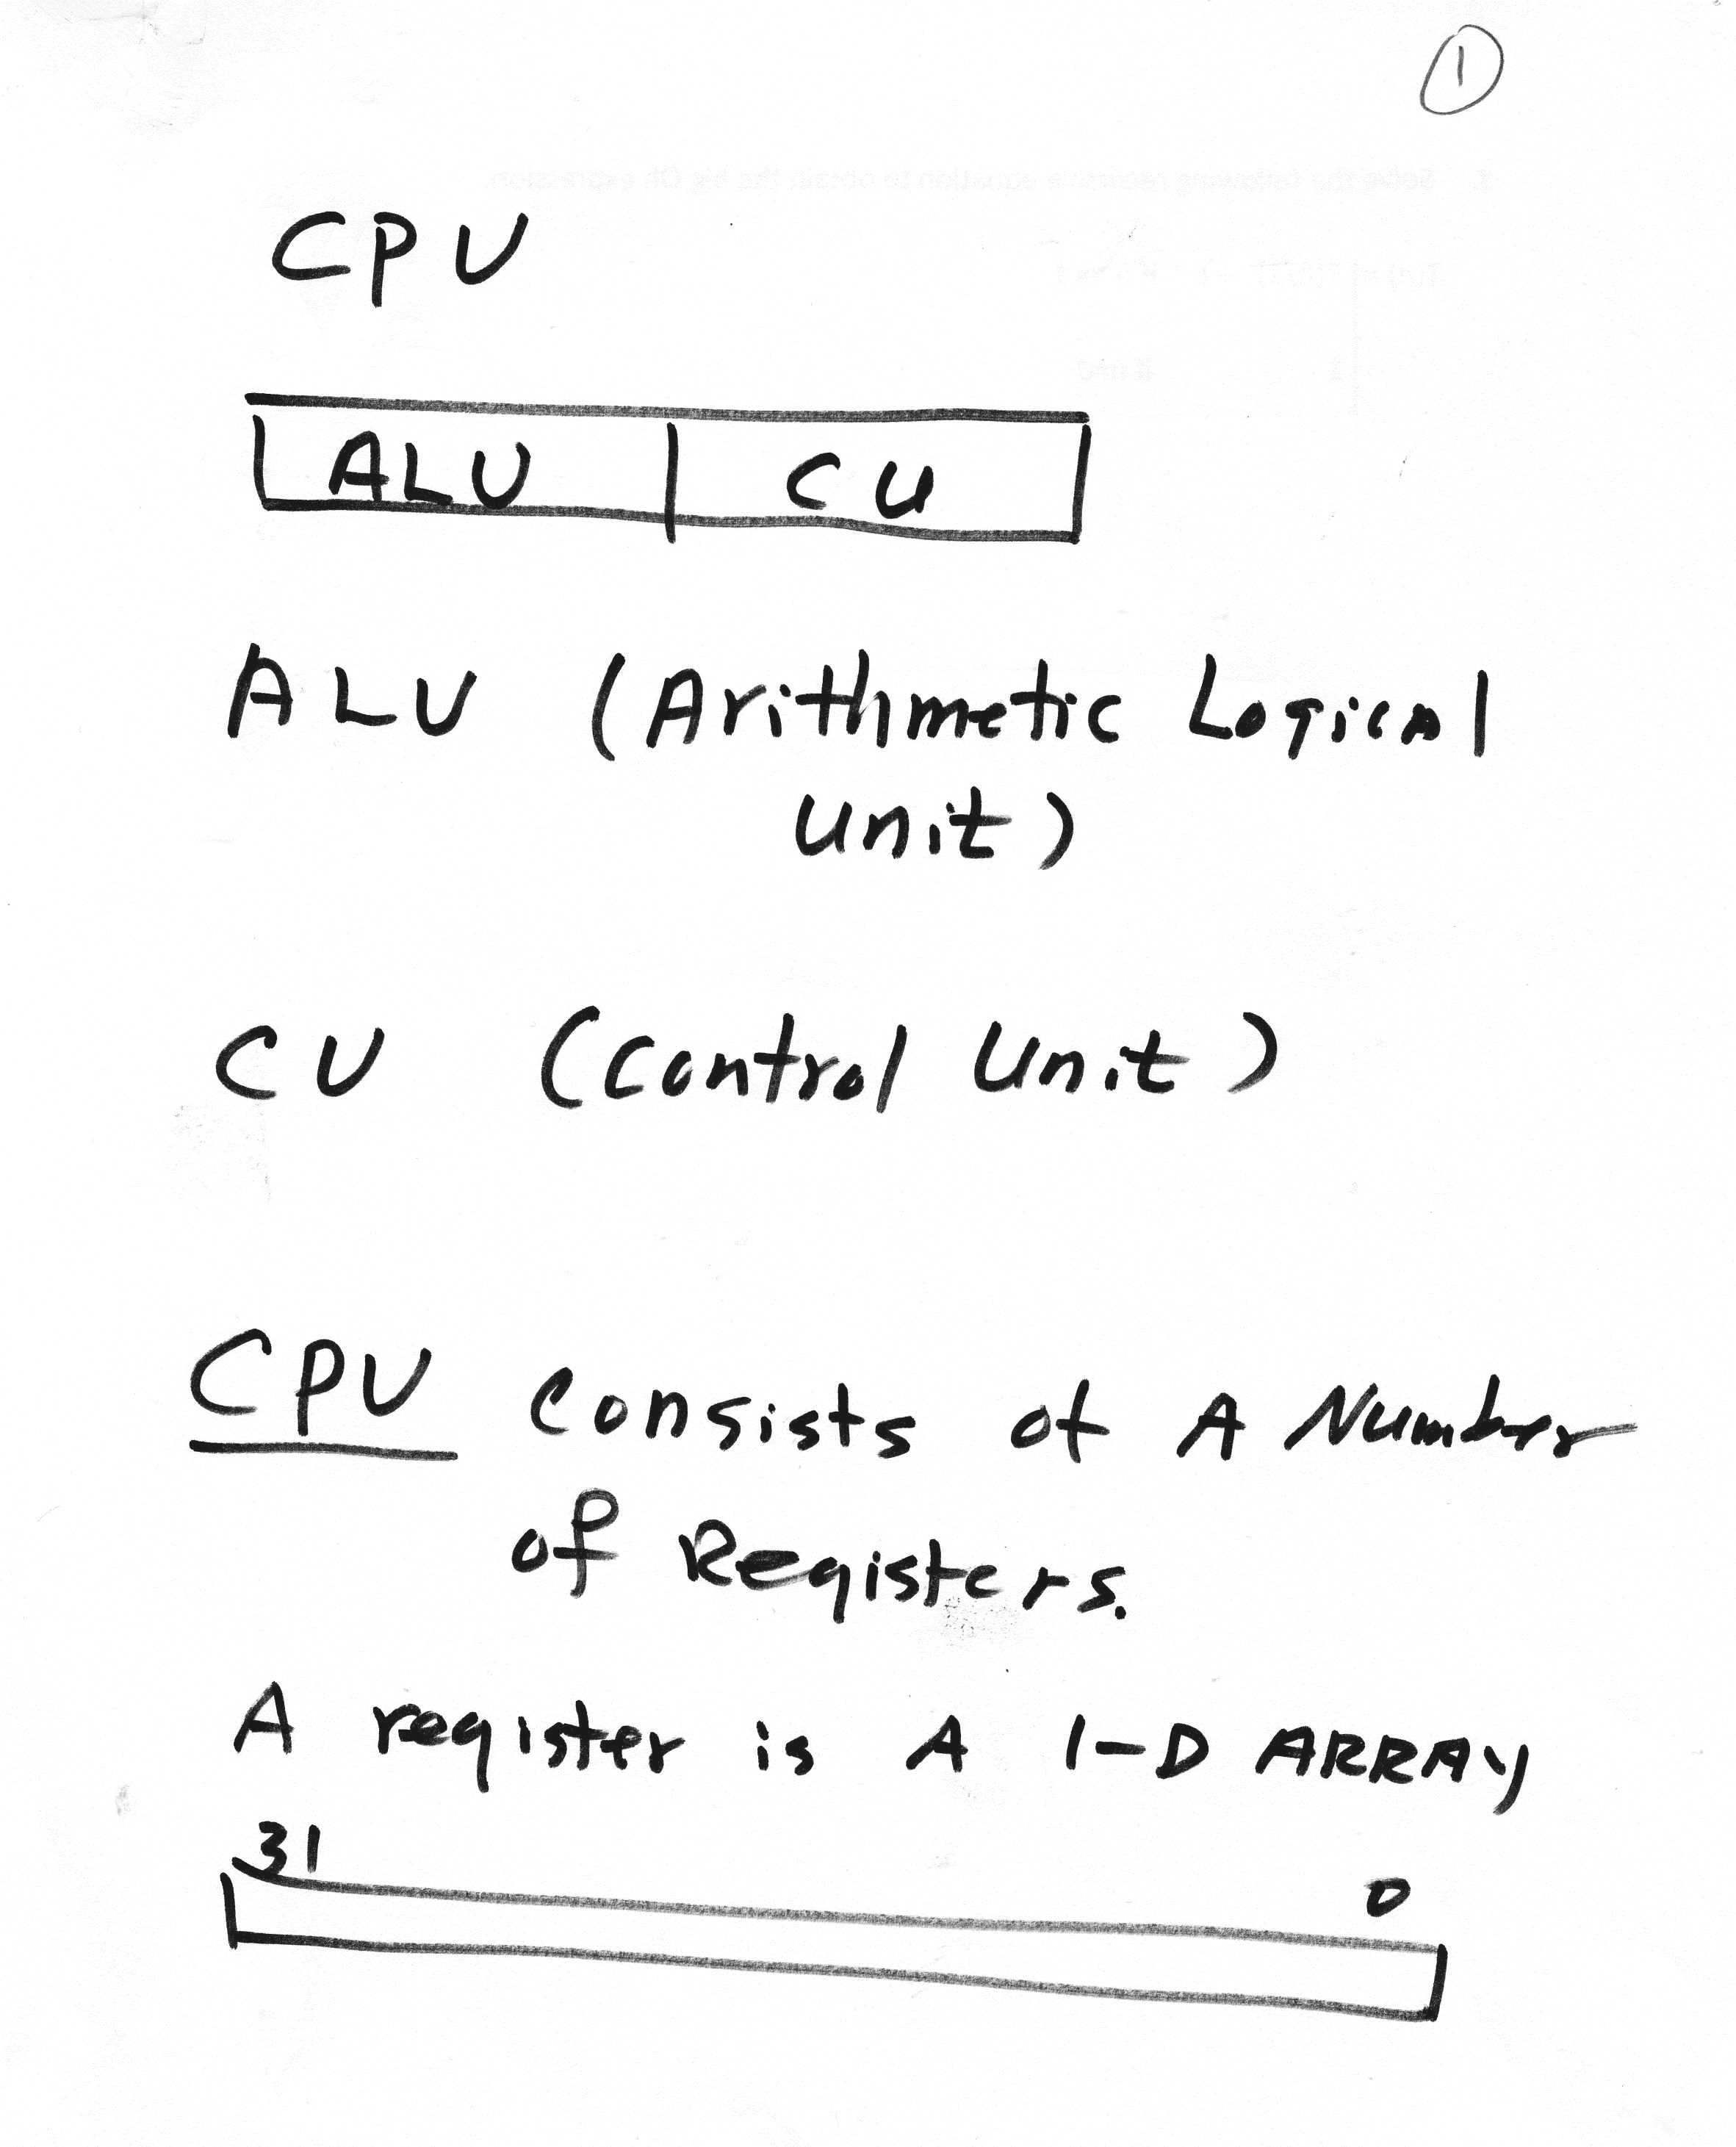 1
CPU
ALU CU
ALU (Arithmetic Logical
Unit)
CU (Control Unit)
CPU Consists of A Number
of Registers.
A register is A 1-D ARRAY
31 0